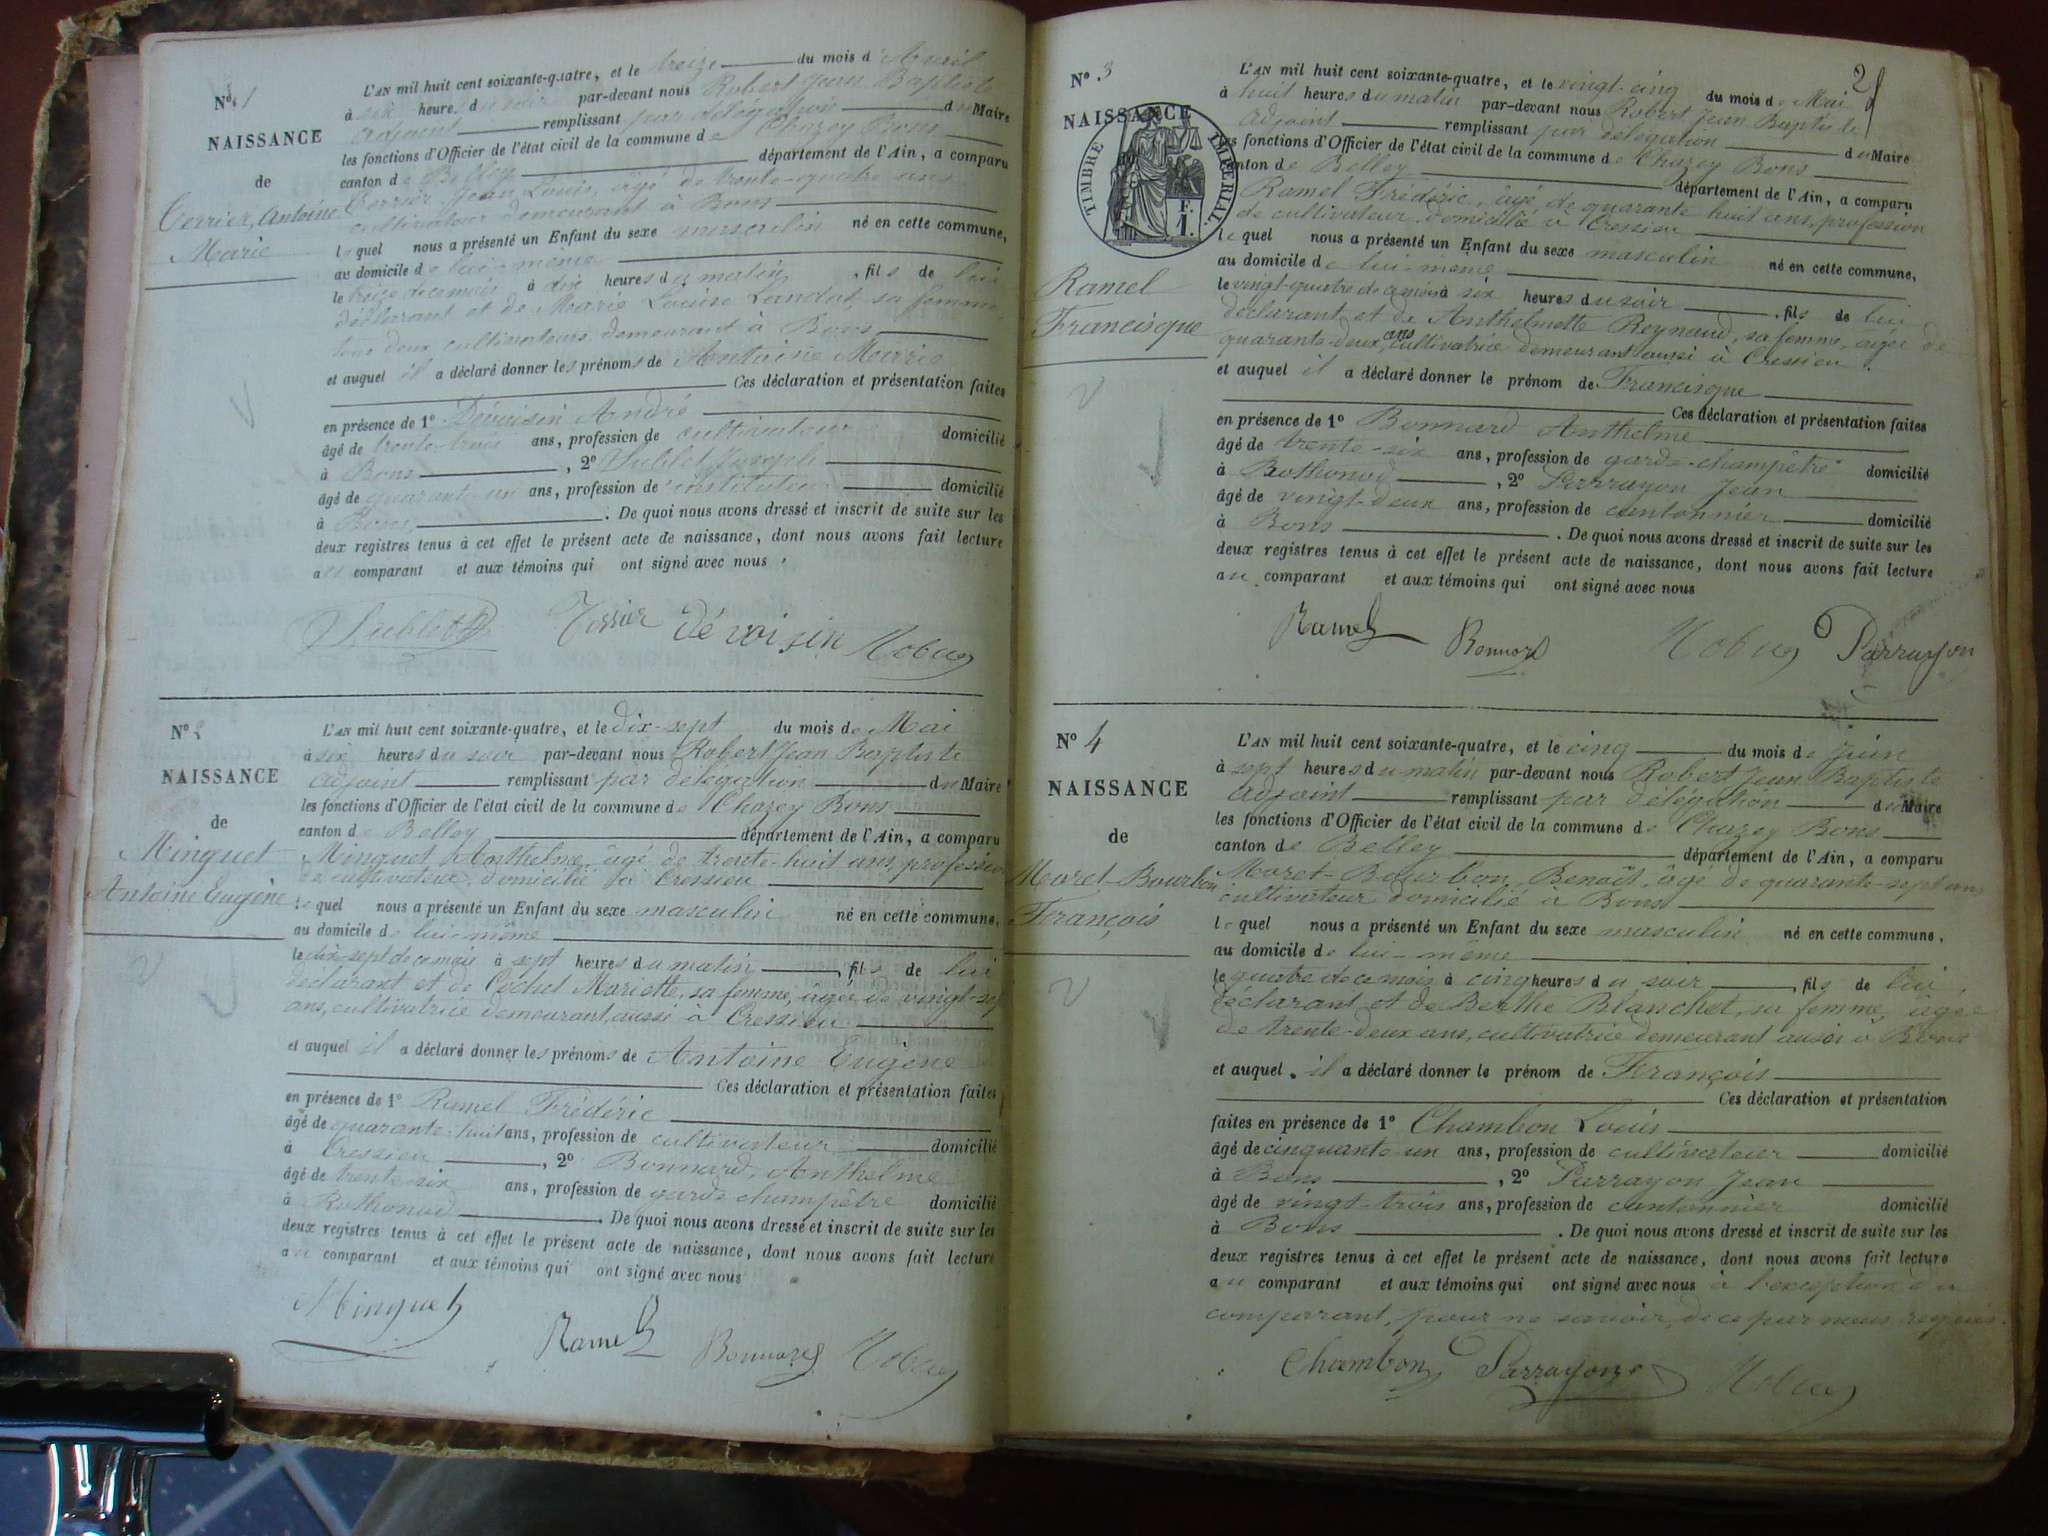 N° 1
NAISSANCE
de
Terrier, Antoine
Marie
L'AN mil huit cent soixante-quatre, et le treize du mois d'Avril
à six heures du soir par-devant nous Robert Jean Baptiste
adjoint remplissant par délégation du Maire
les fonctions d'Officier de l'état civil de la commune de Chazey Bons
canton de Belley département de l'Ain, a comparu
Terrier Jean Louis, âgé de trente-quatre ans
cultivateur demeurant à Bons
lequel nous a présenté un Enfant du sexe masculin né en cette commune,
au domicile de lui-même
le treize de ce mois à dix heures du matin, fils de lui
déclarant et de Marie Louise sa femme,
tous deux cultivateurs demeurant à Bons
et auquel il a déclaré donner les prénoms de Antoine Marie
Ces déclaration et présentation faites
en présence de 1° Dévoisin André
âgé de trente-trois ans, profession de cultivateur domicilié
à Bons, 2° Sublet Joseph
âgé de quarante-un ans, profession de instituteur domicilié
à Bons. De quoi nous avons dressé et inscrit de suite sur les
deux registres tenus à cet effet le présent acte de naissance, dont nous avons fait lecture
au comparant et aux témoins qui ont signé avec nous.
Sublet Terrier Dévoisin
N° 2
NAISSANCE
de
Minguet
Antoine Eugène
L'AN mil huit cent soixante-quatre, et le dix-sept du mois de Mai
à six heures du soir par-devant nous Robert Jean Baptiste
adjoint remplissant par délégation du Maire
les fonctions d'Officier de l'état civil de la commune de Chazey Bons
canton de Belley département de l'Ain, a comparu
Minguet Anthelme, âgé de trente-huit ans, profession
de cultivateur, domicilié à Cressieu
lequel nous a présenté un Enfant du sexe masculin né en cette commune,
au domicile de lui-même
le dix-sept de ce mois à sept heures du matin, fils de lui
déclarant et de Cochet Mariette, sa femme, âgée de vingt-sept
ans, cultivatrice demeurant aussi à Cressieu
et auquel il a déclaré donner les prénoms de Antoine Eugène
Ces déclaration et présentation faites
en présence de 1° Ramel Frédéric
âgé de quarante-huit ans, profession de cultivateur domicilié
à Cressieu, 2° Bonnard, Anthelme
âgé de trente-six ans, profession de garde champêtre domicilié
à Rothonod. De quoi nous avons dressé et inscrit de suite sur les
deux registres tenus à cet effet le présent acte de naissance, dont nous avons fait lecture
au comparant et aux témoins qui ont signé avec nous
Minguet
Ramel Bonnard
2
N° 3
NAISSANCE
TIMBRE IMPÉRIAL
F.
1.
Ramel
Francisque
L'AN mil huit cent soixante-quatre, et le vingt-cinq du mois de Mai
à huit heures du matin par-devant nous Robert Jean Baptiste
adjoint remplissant par délégation du Maire
les fonctions d'Officier de l'état civil de la commune de Chazey Bons
canton de Belley département de l'Ain, a comparu
Ramel Frédéric, âgé de quarante huit ans, profession
de cultivateur, domicilié à Cressieu
lequel nous a présenté un Enfant du sexe masculin né en cette commune,
au domicile de lui-même
le vingt-quatre de ce mois à six heures du soir, fils de lui
déclarant et de Anthelmette Reynaud, sa femme, âgée de
quarante-deux ans cultivatrice demeurant aussi à Cressieu
et auquel il a déclaré donner le prénom de Francisque
Ces déclaration et présentation faites
en présence de 1° Bonnard Anthelme
âgé de trente-six ans, profession de garde-champêtre domicilié
à Rothonod, 2° Perrayon Jean
âgé de vingt-deux ans, profession de cantonnier domicilié
à Bons. De quoi nous avons dressé et inscrit de suite sur les
deux registres tenus à cet effet le présent acte de naissance, dont nous avons fait lecture
au comparant et aux témoins qui ont signé avec nous
Ramel Bonnard Parrayon
N° 4
NAISSANCE
de
Moret-Bourbon
François
L'AN mil huit cent soixante-quatre, et le cinq du mois de Juin
à sept heures du matin par-devant nous Robert Jean Baptiste
adjoint remplissant par délégation du Maire
les fonctions d'Officier de l'état civil de la commune de Chazey Bons
canton de Belley département de l'Ain, a comparu
Moret-Bourbon, Benoît, âgé de quarante-sept ans
cultivateur domicilié à Bons
lequel nous a présenté un Enfant du sexe masculin né en cette commune,
au domicile de lui-même
le quatre de ce mois à cinq heures du soir, fils de lui,
déclarant et de Berthe Blanchet, sa femme, âgée
de trente-deux ans, cultivatrice demeurant aussi à Bons
et auquel il a déclaré donner le prénom de François
Ces déclaration et présentation
faites en présence de 1° Chambon Louis
âgé de cinquante-un ans, profession de cultivateur domicilié
à Bons, 2° Perrayon Jean
âgé de vingt-trois ans, profession de cantonnier domicilié
à Bons. De quoi nous avons dressé et inscrit de suite sur les
deux registres tenus à cet effet le présent acte de naissance, dont nous avons fait lecture
au comparant et aux témoins qui ont signé avec nous à l'exception du
comparant, pour ne savoir, de ce par nous requis.
Chambon Parrayon